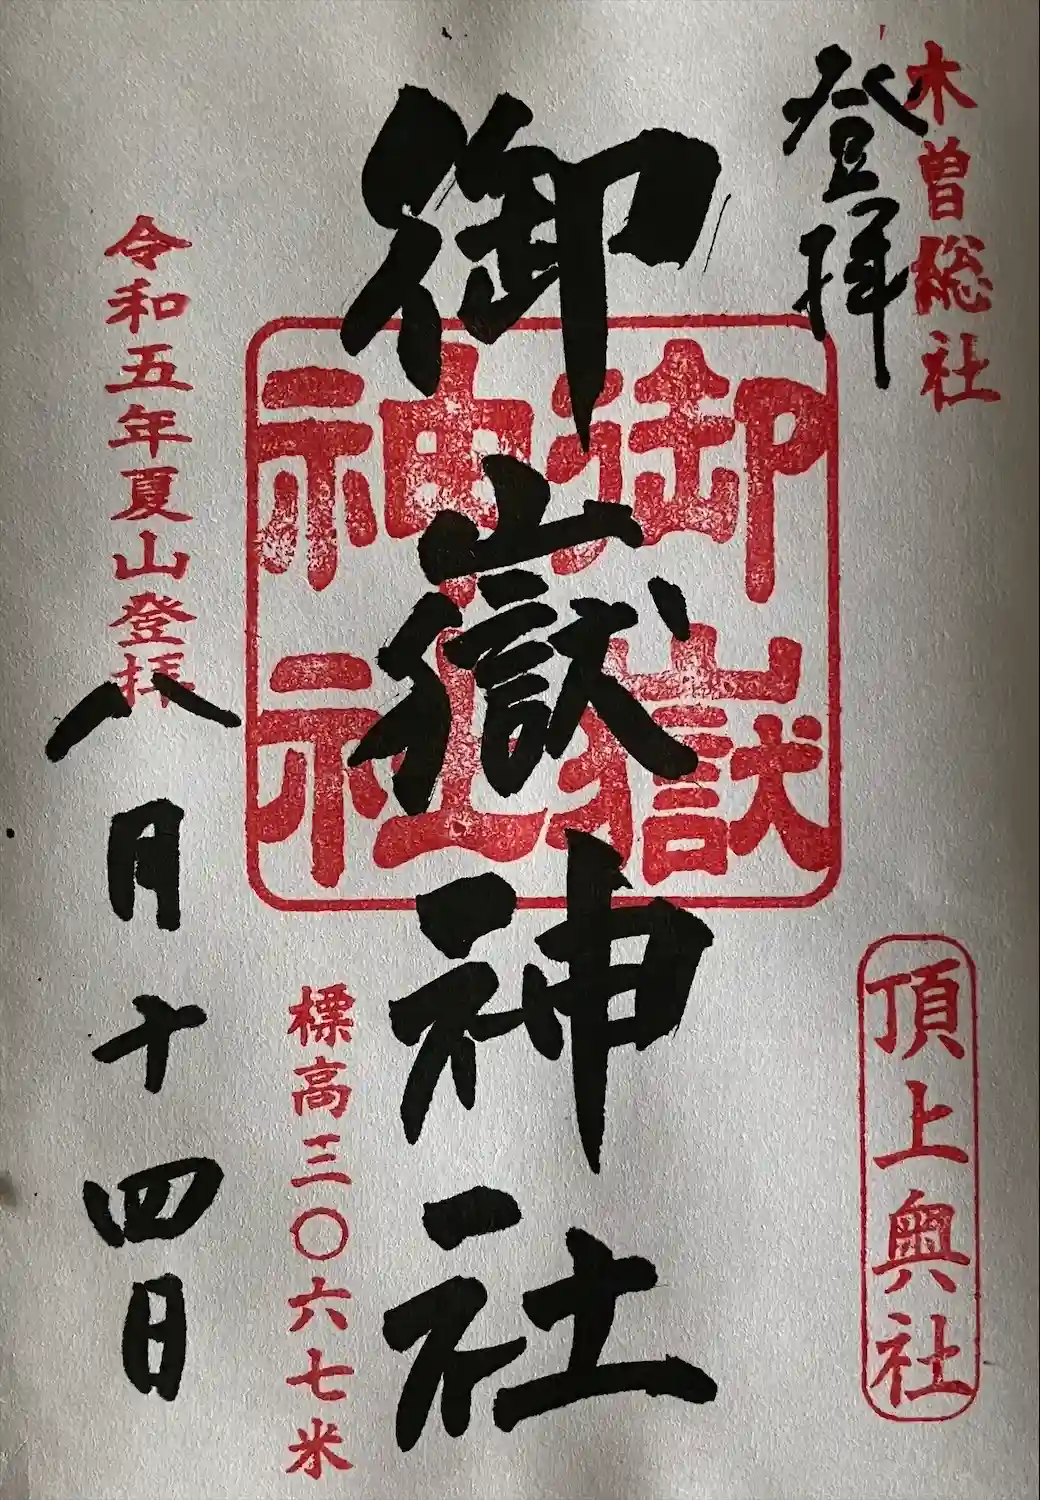 木曽総社
登拝
頂上奥社
御嶽神社
御嶽
神社
標高三〇六七米
令和五年夏山登拝
八月十四日